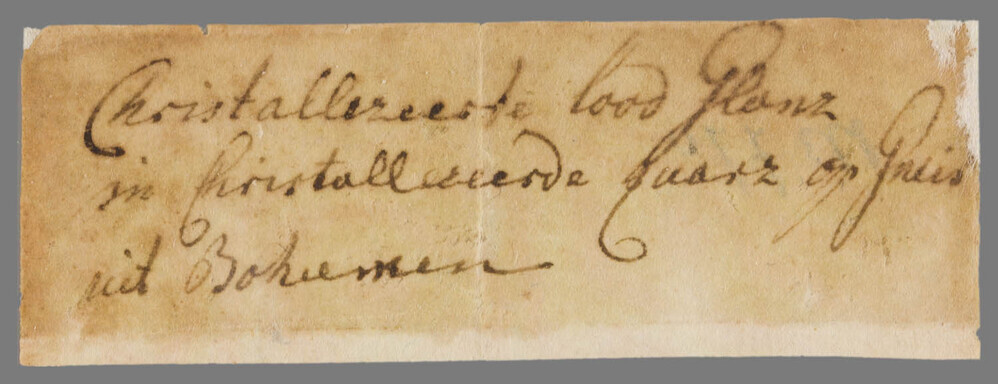 Christallezeerde lood Glanz
in Christallezeerde Quarz op Gneis
uit Boheemen